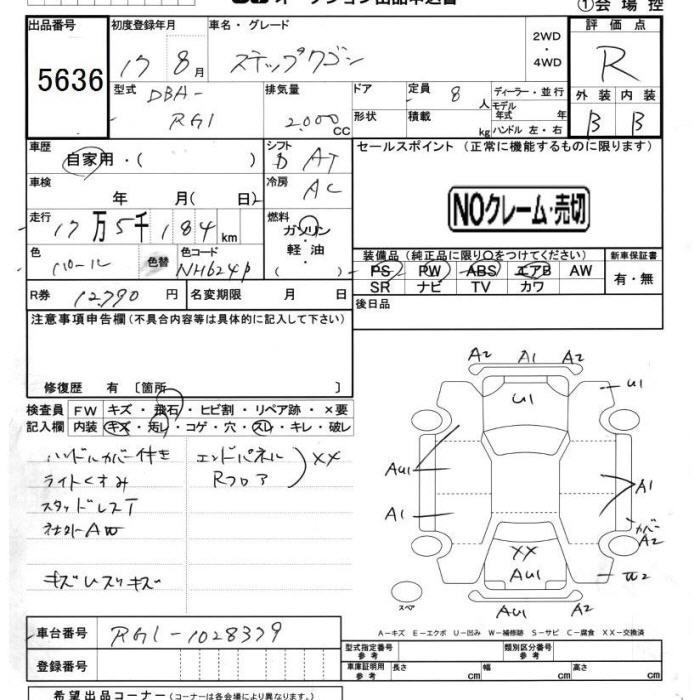 オークション出品申込書
①会場控
出品番号
5636
初度登録年月
17 8月
車名・グレード
ステップワゴン
2WD
・
4WD
評価点
R
外装 内装
B B
型式
DBA-
RG1
排気量
2,000 cc
ドア
形状
定員 8 人
積載 kg
ディーラー・並行
モデル年式 年式
ハンドル 左・右
車歴
自家用・( )
シフト
AT
車検
年 月( 日)
冷房
AC
走行
17万5千184km
燃料
ガソリン
軽・油
( )
色
パール
色替
色コード
NH624P
R券 12,790 円
名変期限 月 日
セールスポイント(正常に機能するものに限ります)
NOクレーム・売切
装備品(純正品に限り○をつけてください)
PS PW ABS エアB AW
SR ナビ TV カワ
新車保証書
有・無
後日品
注意事項申告欄(不具合内容等は具体的に記入して下さい)
修復歴 有〔箇所 〕
検査員
記入欄
FW キズ・飛石・ヒビ割・リペア跡・×要
内装 キズ・汚レ・コゲ・穴・スレ・キレ・破レ
ハンドルカバー付き
ライトくすみ
スタッドレスT
社外AW
キズひズリキズ
エンドパネル
Rフロア
XX
A2 A1 A2
U1
U1
AU1
A1
A1
カバー
A2
XX
AU1
W2
AU1 A2
スペア
A−キズ E−エクボ U−凹み W−補修跡 S−サビ C−腐食 XX−交換済
車台番号 RG1-1028379
登録番号
型式指定番号
参考
類別区分番号
参考
車庫証明用
参考
長さ cm
幅 cm
高さ cm
希望出品コーナー(コーナーは各会場により異なります)